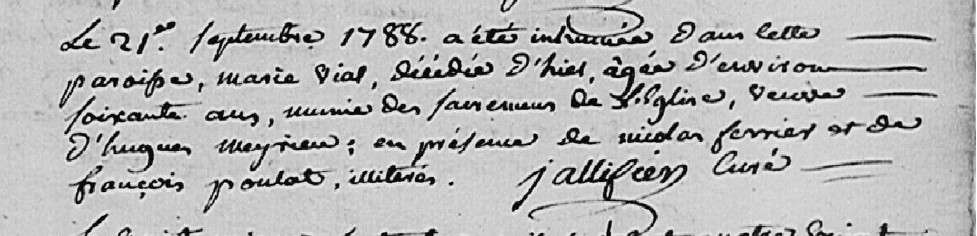 Le 21e. septembre 1788. a été inhumée dans cette
paroisse, marie vial, décédée d'hier, âgée d'environ
soixante ans, munie des sacremens de l'Eglise, veuve
d'hugues meyrieu; en présence de nicolas ferrier et de
françois poulat, illiterés. jallifier Curé